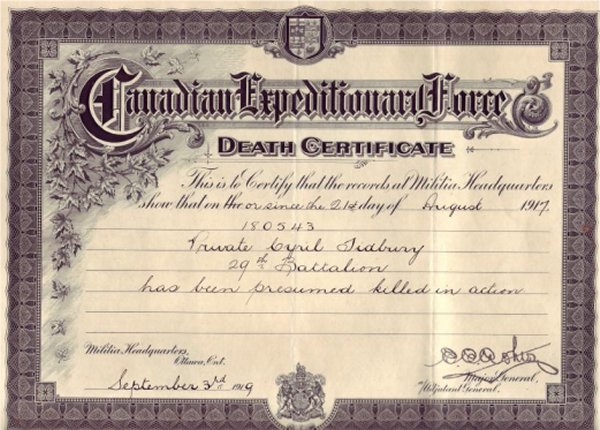 Canadian Expeditionary Force
DEATH CERTIFICATE
This is to Certify that the records at Militia Headquarters
show that on the or since the 21st day of August 1917.
180543
Private Cyril Tidbury
29th Battalion
has been presumed killed in action
Militia Headquarters,
Ottawa, Ont.
September 3rd 1919
Major General,
Adjutant General.